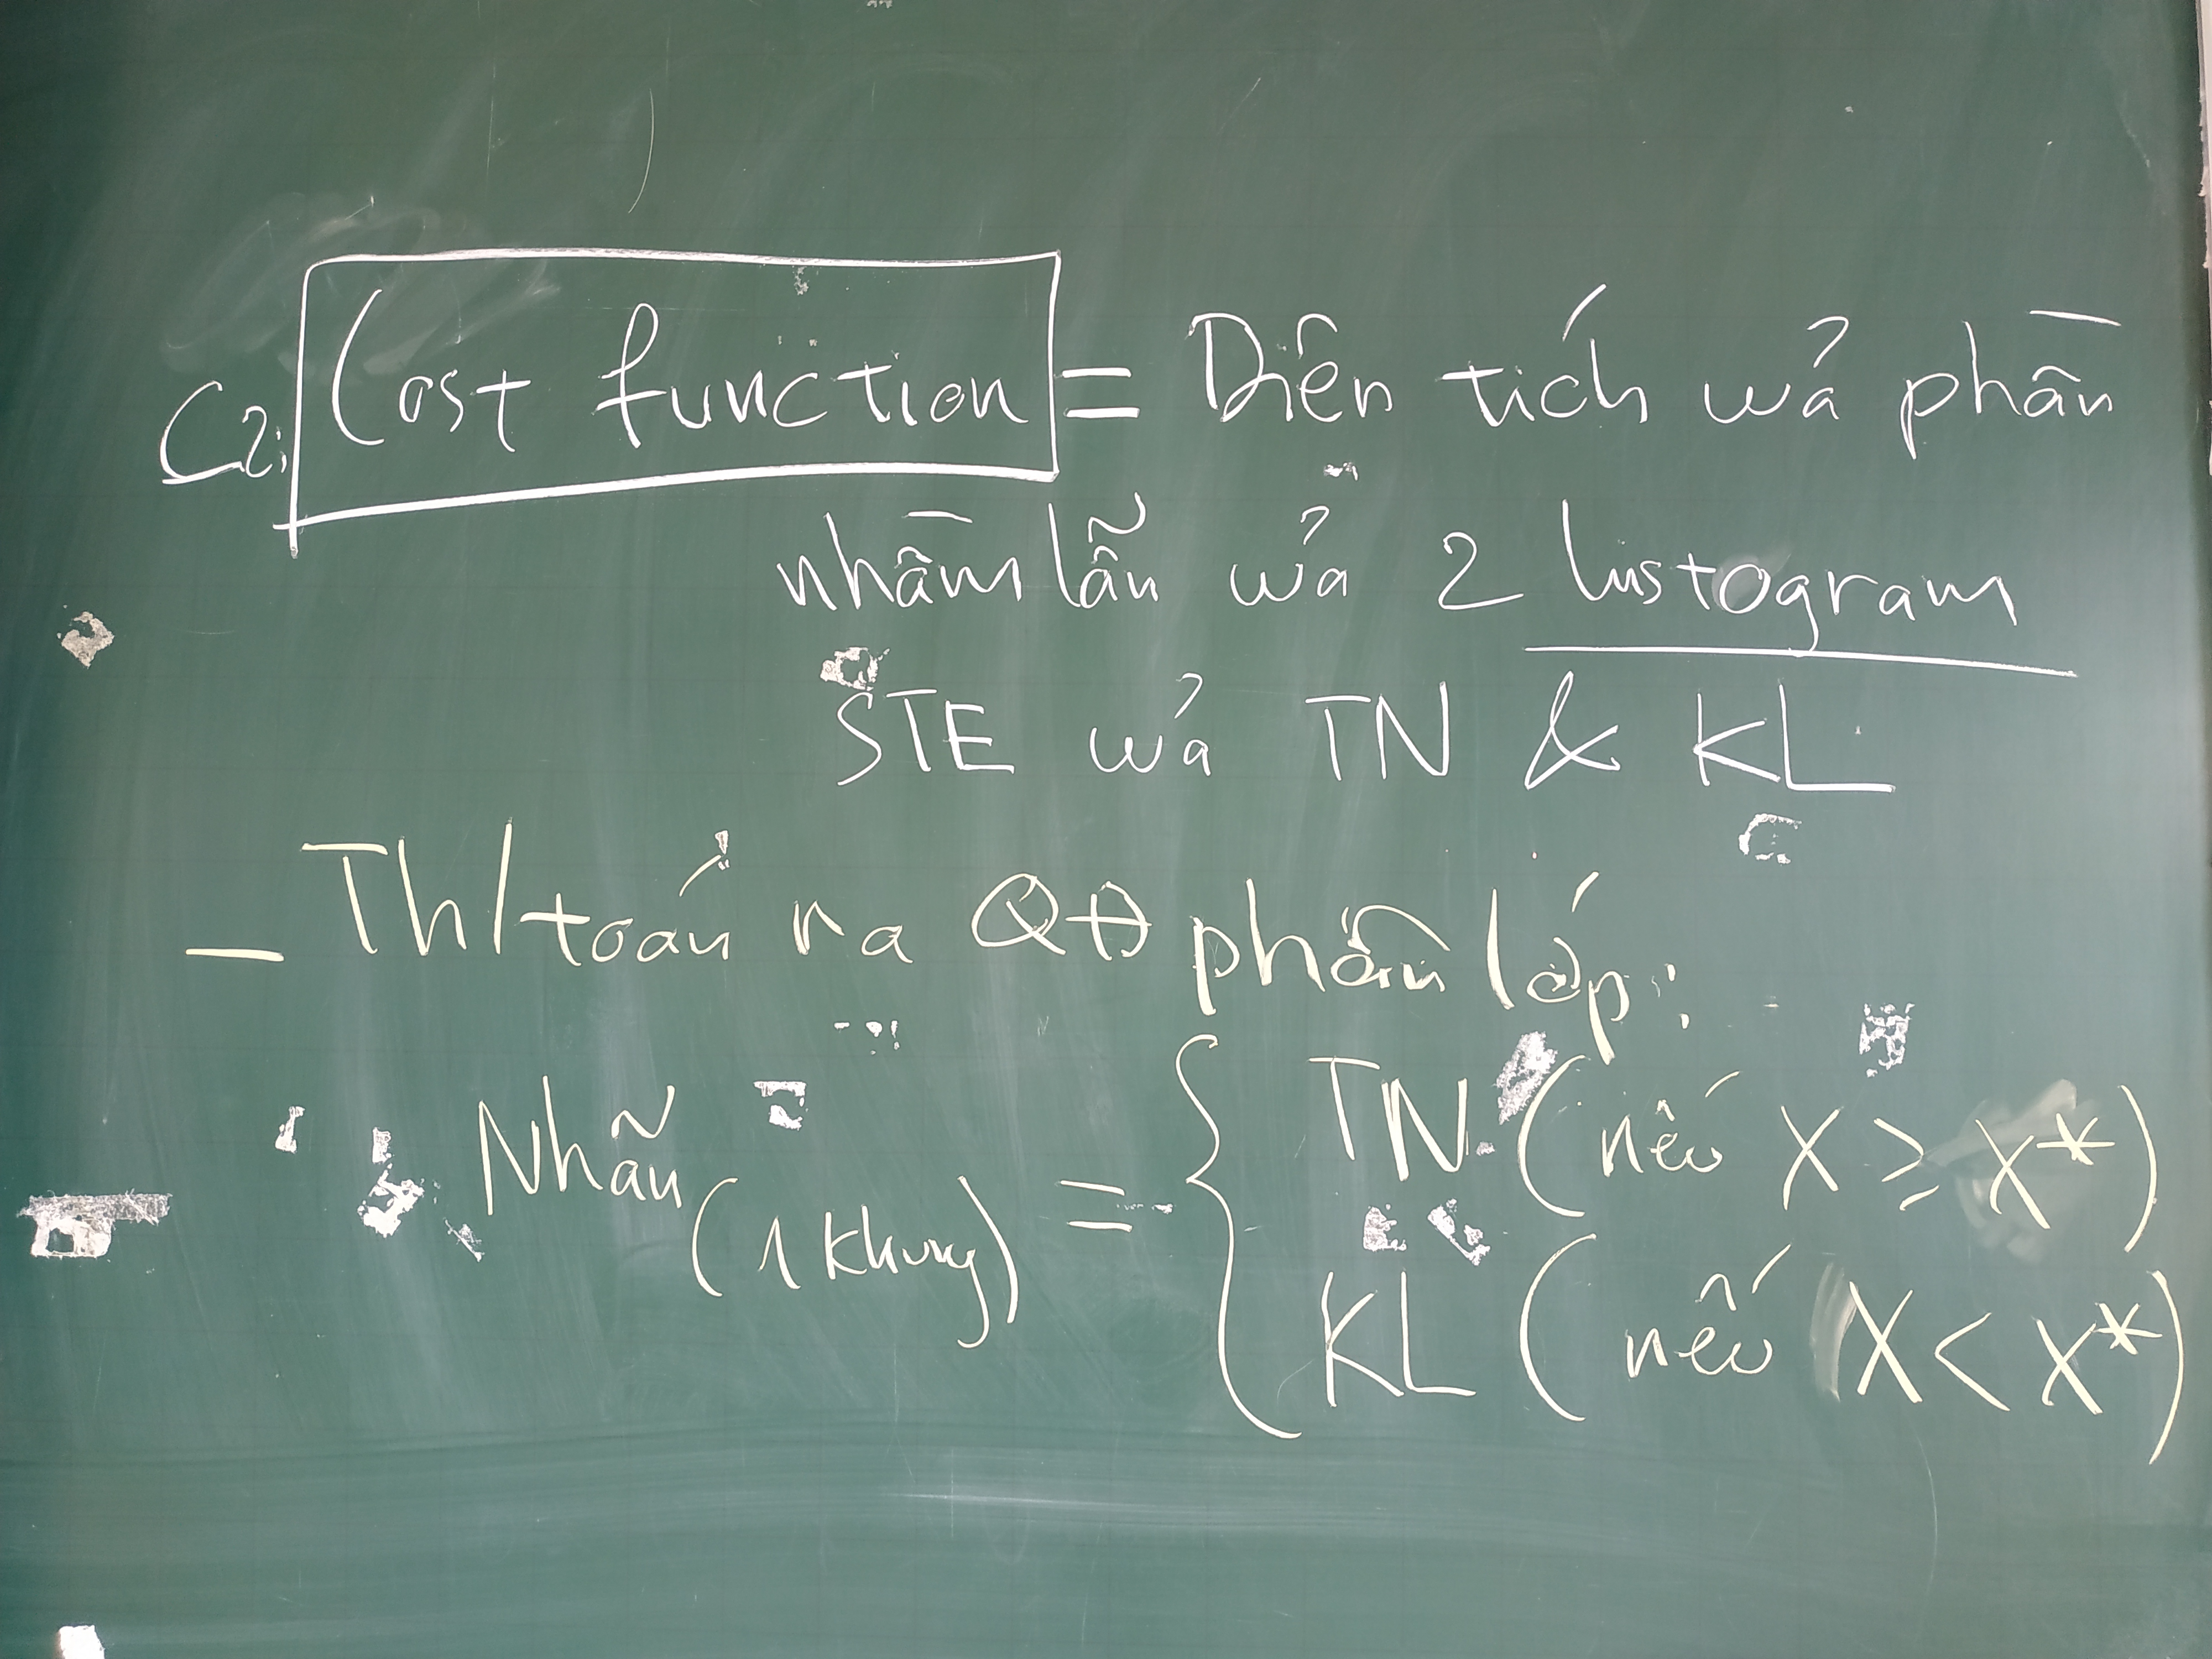 C2: Cost function = Diện tích của phần
nhầm lẫn của 2 histogram
STE của TN & KL
- Th/toán ra QĐ phân lớp:
Nhãn (1 khung) = { TN (nếu X ≥ X*)
KL (nếu X < X*)